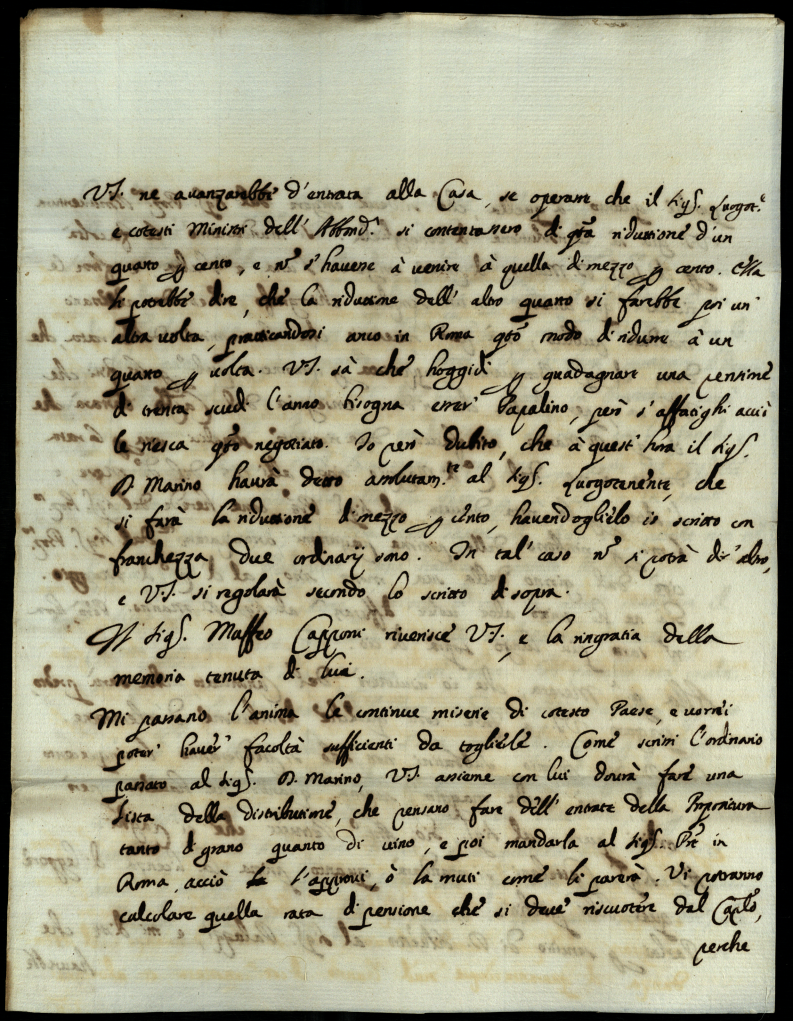 V.S. ne avanzarebbe d'entrata alla Casa, se operasse che il Sig.r Luogot.e
e cotesti Ministri dell'Abbond.a si contentassero di q͞sta riduttione d'un
quarto ꝑ cento, e nõ s'havesse à venire à quella di mezzo ꝑ cento. Ella
li potrebbe dire, che la riduttione dell'altro quarto si farebbe poi un'
altra volta, pratticandosi anco in Roma q͞sto modo di ridurre à un
quarto ꝑ volta. V.S. sà che hoggidì ꝑ guadagnare una pensione
di trenta scudi l'anno bisogna esser' Papalino, però s'affatighi acciò
le riesca q͞sto negotiato. Io però dubito, che à quest'hora il Sig.r
D. Marino havrà detto assolutam.te al Sig.r Luogotenente, che
si farà la riduttione di mezzo ꝑ cento, havendoglielo io scritto con
franchezza due ordinarij sono. In tal' caso nõ si potrà dir' altro,
e V.S. si regolarà secondo lo scritto di sopra.
Il Sig.r Maffeo Capponi riverisce V.S., e la ringratia della
memoria tenuta di lui.
Mi passano l'anima le continue miserie di cotesto Paese, e vorrei
poter' haver' facoltà sufficienti da toglierle. Come scrissi l'ordinario
passato al Sig.r D. Marino, V.S. assieme con lui dovrà fare una
lista della distributione, che pensano fare dell'entrate della Prepositura
tanto di grano quanto di vino, e poi mandarla al Sig.r Pre͞ in
Roma, acciò l'approvi, ò la muti come li parerà. Vi potranno
calcolare quella rata di pensione che si deve riscuotere dal Cap͞lo,
perche